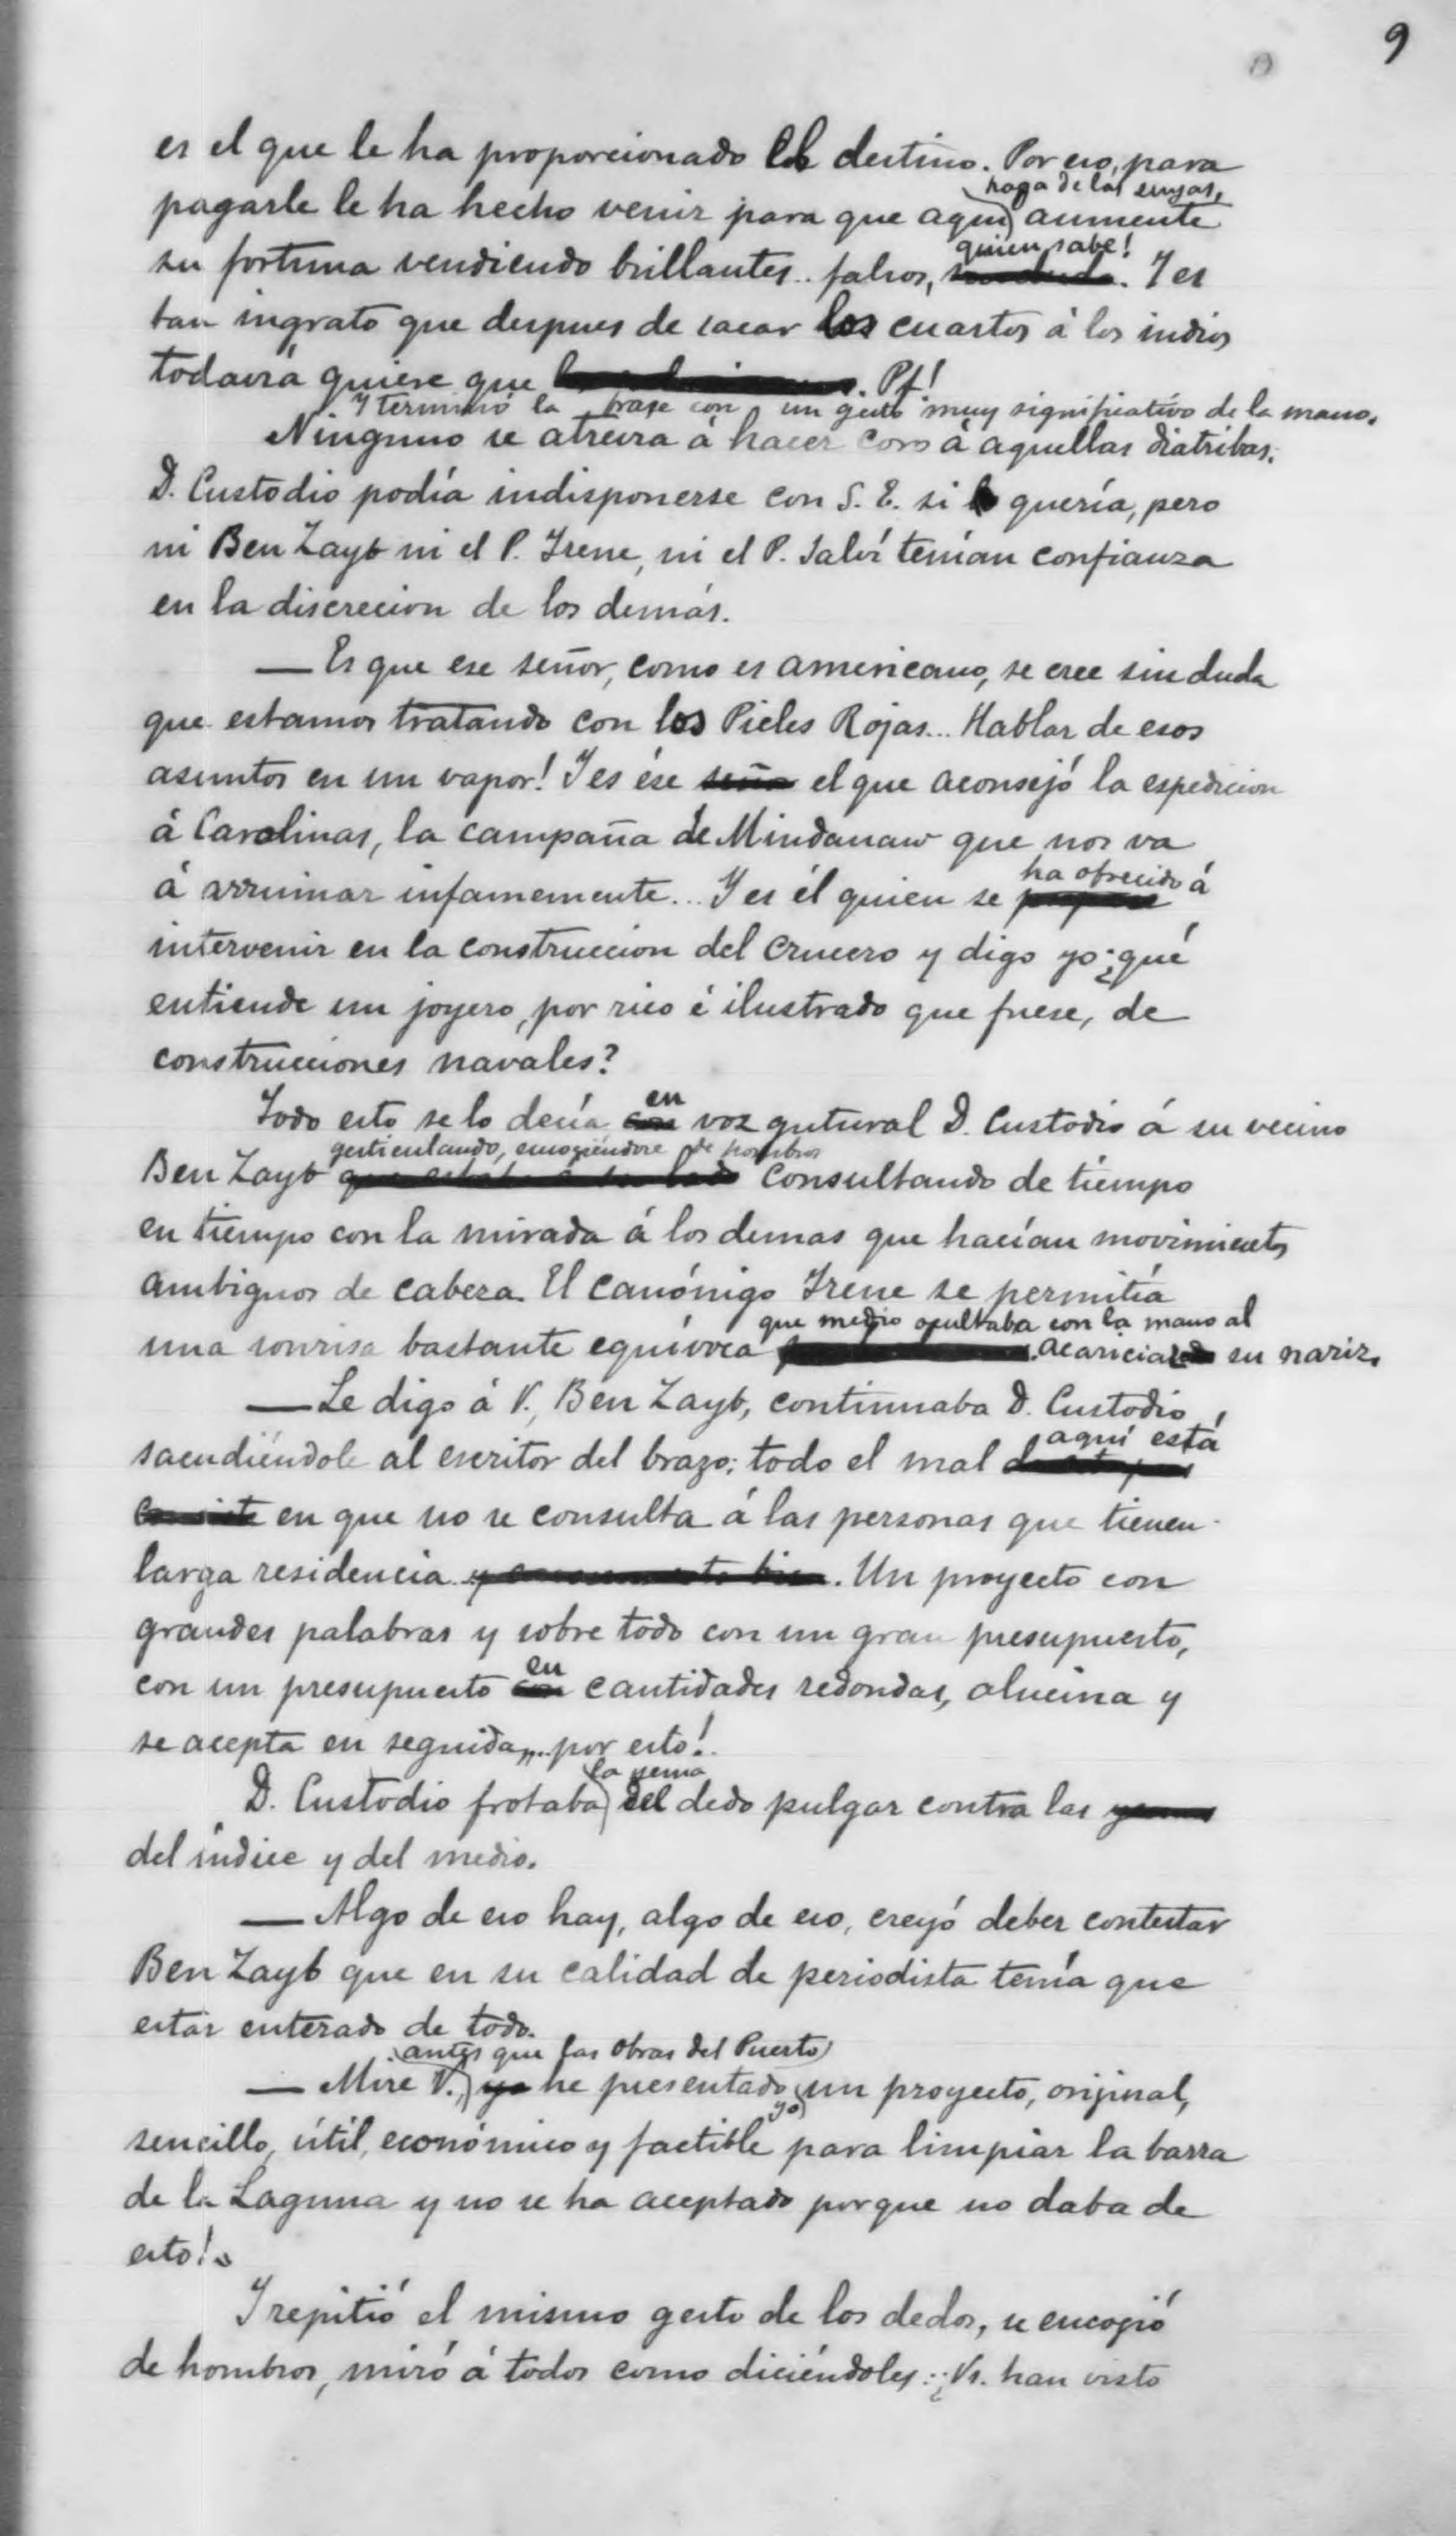 9
es el que le ha proporcionado el destino. Por eso, para
haga de las suyas,
pagarle le ha hecho venir para que aquí aumente
quien sabe!
su fortuna vendiendo brillantes.. falsos, . Y es
tan ingrato que despues de sacar los cuartos á los indios
todavía quiere que . Pf!
Y terminó la frase con un gesto muy significativo de la mano.
Ninguno se atreviera á hacer coro á aquellas diatribas;
D. Custodio podía indisponerse con S. E. si quería, pero
ni Ben Zayb ni el P. Irene, ni el P. Salví tenían confianza
en la discrecion de los demás.
— Es que ese señor, como es americano, se cree sin duda
que estamos tratando con los Pieles Rojas... Hablar de esos
asuntos en un vapor! Y es ése seño el que aconsejó la espedicion
á Carolinas, la campaña de Mindanaw que nos va
ha ofrecido á
á arruinar infamemente... Y es él quien se
intervenir en la construccion del crucero y digo yo: ¿qué
entiende un joyero, por rico é ilustrado que fuese, de
construcciones navales?
en
Todo esto se lo decía con voz gutural D. Custodio á su vecino
gesticulando, encogiéndose de hombros
Ben Zayb que estaba á su lado consultando de tiempo
en tiempo con la mirada á los demas que hacían movimientos
ambiguos de cabeza. El canónigo Irene se permitía
que medio ocultaba con la mano al
una sonrisa bastante equívoca acariciar su nariz.
— Le digo á V., Ben Zayb, continuaba D. Custodio
aquí está
sacudiéndole al escritor del brazo; todo el mal
consiste en que no se consulta á las personas que tienen
larga residencia . Un proyecto con
grandes palabras y sobre todo con un gran presupuesto,
en
con un presupuesto con cantidades redondas, alucina y
se acepta en seguida,... por esto!
la yema
D. Custodio frotaba del dedo pulgar contra las yemas
del índice y del medio.
— Algo de eso hay, algo de eso, creyó deber contestar
Ben Zayb que en su calidad de periodista tenía que
estar enterado de todo.
antes que las obras del Puerto
— Mire V., yo he presentado un proyecto, original,
yo
sencillo, útil, económico y factible para limpiar la barra
de la Laguna y no se ha aceptado porque no daba de
esto!
Y repitió el mismo gesto de los dedos, se encogió
de hombros, miró á todos como diciéndoles: ¿Vs. han visto